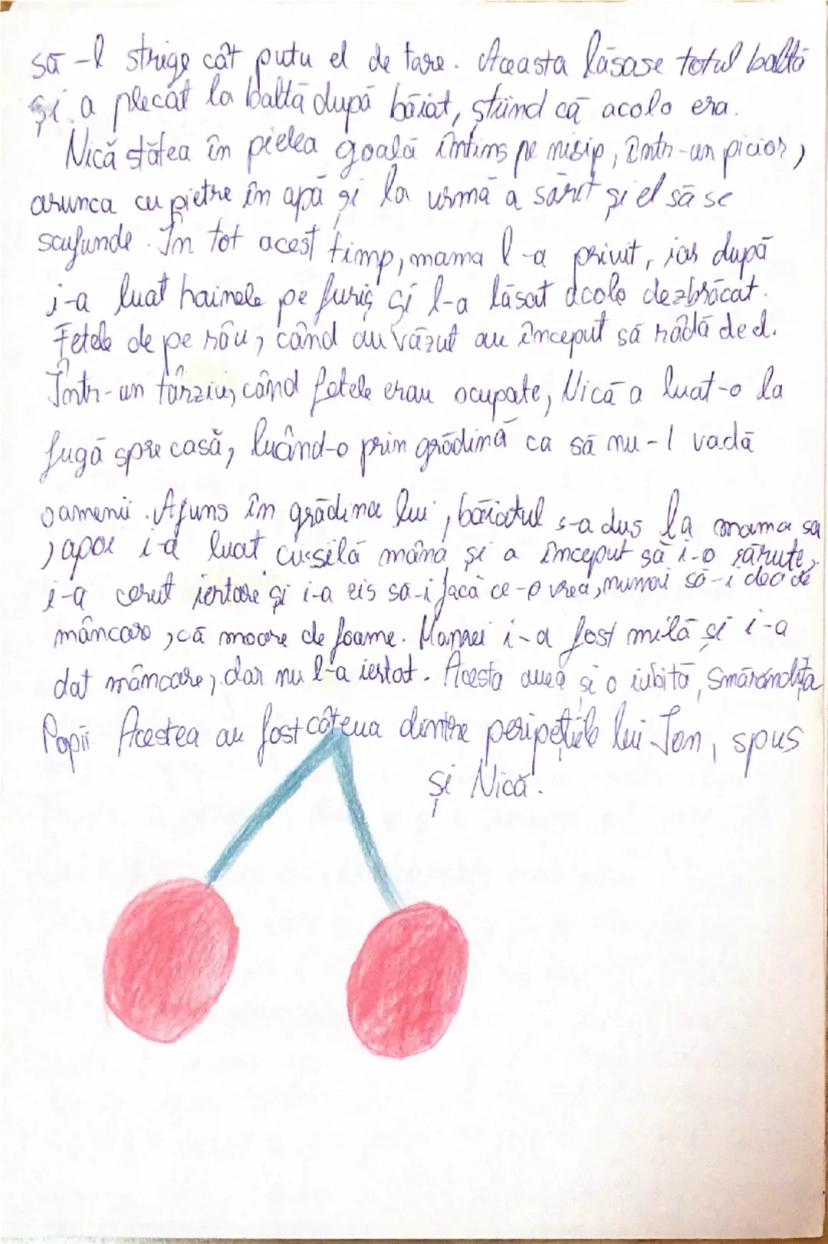 să-l strige cât putu el de tare. Aceasta lăsase totul baltă
și a plecat la baltă după băiat, știind că acolo era.
Nică stătea în pielea goală întins pe nisip, într-un picior,
arunca cu pietre în apă și la urmă a sărit și el să se
scufunde. În tot acest timp, mama l-a privit, iar după
i-a luat hainele pe furiș și l-a lăsat acolo dezbrăcat.
Fetele de pe râu, când au văzut au început să râdă de el.
Într-un târziu, când fetele erau ocupate, Nică a luat-o la
fugă spre casă, luând-o prin grădină ca să nu-l vadă
oamenii. Ajuns în grădina lui, băiatul s-a dus la mama sa
, apoi i-a luat cu silă mâna și a început să i-o sărute,
i-a cerut iertare și i-a zis să-i facă ce-o vrea, numai să-i dea de
mâncare, că moare de foame. Mamei i-a fost milă și i-a
dat mâncare, dar nu l-a iertat. Acesta avea și o iubită, Smărăndița
Popii. Acestea au fost câteva dintre peripețiile lui Ion, spus
și Nică.